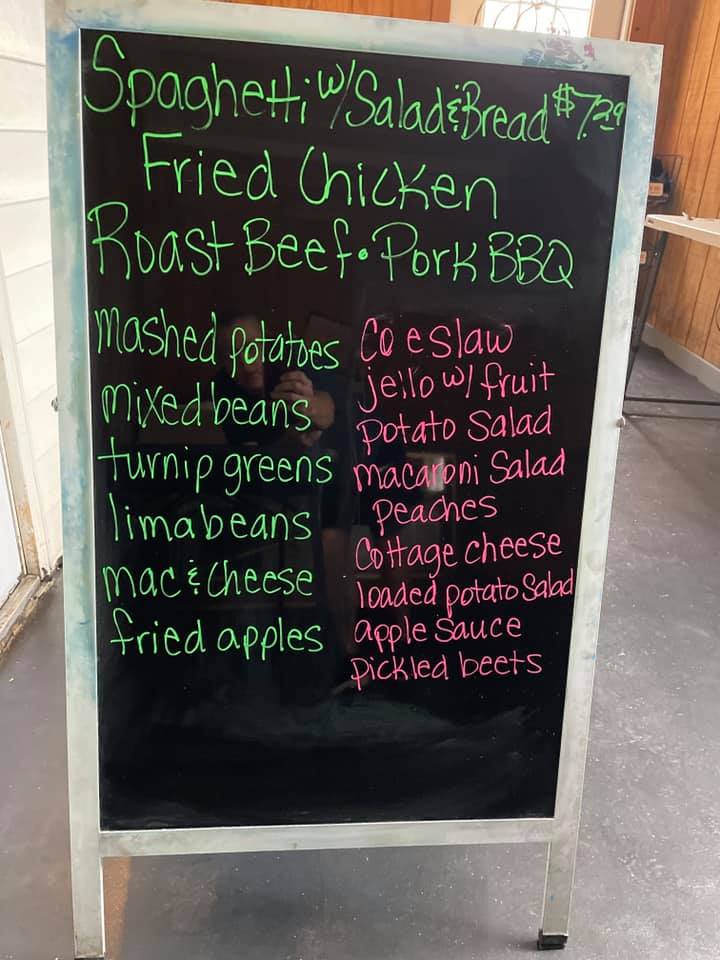 Spaghetti w/ Salad & Bread $7.29
Fried Chicken
Roast Beef • Pork BBQ
mashed potatoes
mixed beans
turnip greens
lima beans
mac & cheese
fried apples
Coeslaw
jello w/ fruit
potato Salad
macaroni Salad
Peaches
Cottage cheese
loaded potato Salad
apple Sauce
pickled beets